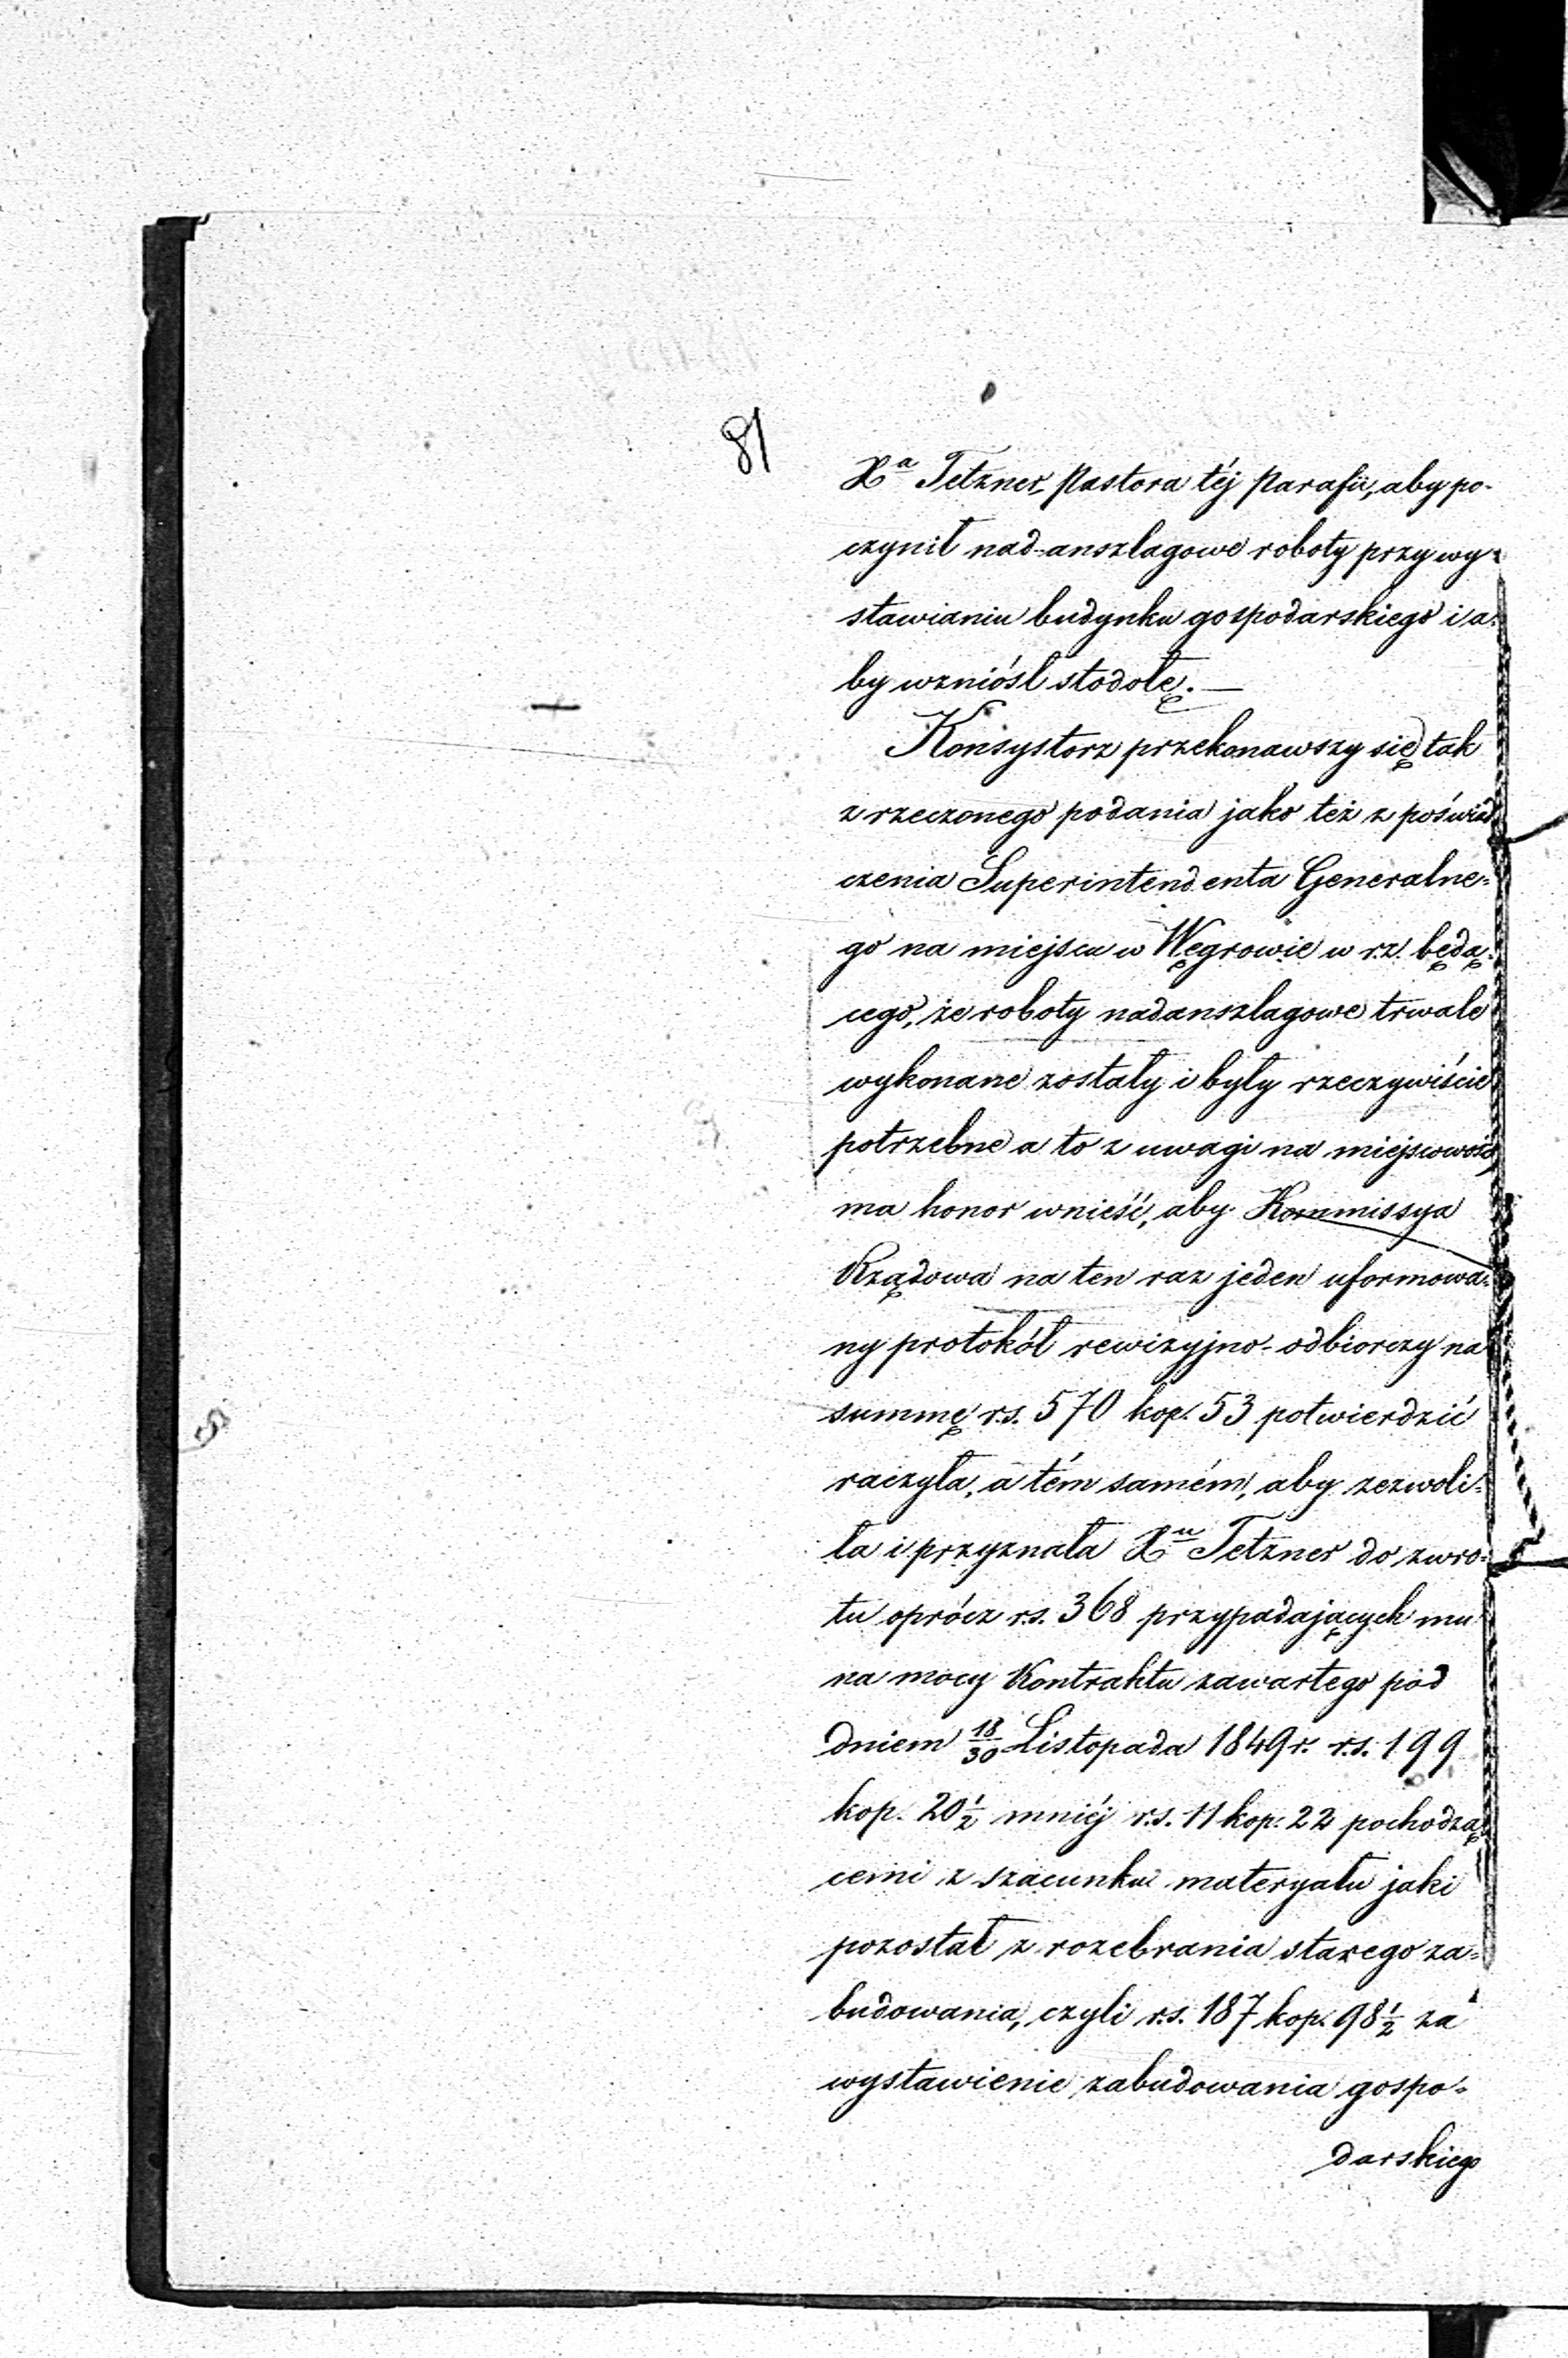 81
Xa Tetzner, Pastora téj Parafii, aby po-
czynił nad-anszlagowe roboty przy wy-
stawianiu budynku gospodarskiego i a-
by wzniósł stodołę. —
Konsystorz przekonawszy się tak
z rzeczonego podania jako też z poświad
czenia Superintendenta Generalne-
go na miejscu w Węgrowie w r.z. będą-
cego, że roboty nadanszlagowe trwale
wykonane zostały i były rzeczywiście
potrzebne a to z uwagi na miejscowość
ma honor wnieść, aby Kommissya
Rządowa na ten raz jeden uformowa-
ny protokół rewizyjno-odbiorczy na
summę r.s. 570 kop. 53 potwierdzić
raczyła, a tém samém, aby zezwoli-
ła i przyznała Xu Tetzner do zwro-
tu oprócz r.s. 368 przypadających mu
na mocy Kontraktu zawartego pod
dniem 18/30 Listopada 1849 r. r.s. 199
kop. 20½ mniéj r.s. 11 kop. 22 pochodzą
cemi z szacunku materyału jaki
pozostał z rozebrania starego za-
budowania, czyli r.s. 187 kop. 98½ za
wystawienie zabudowania gospo-
darskiego